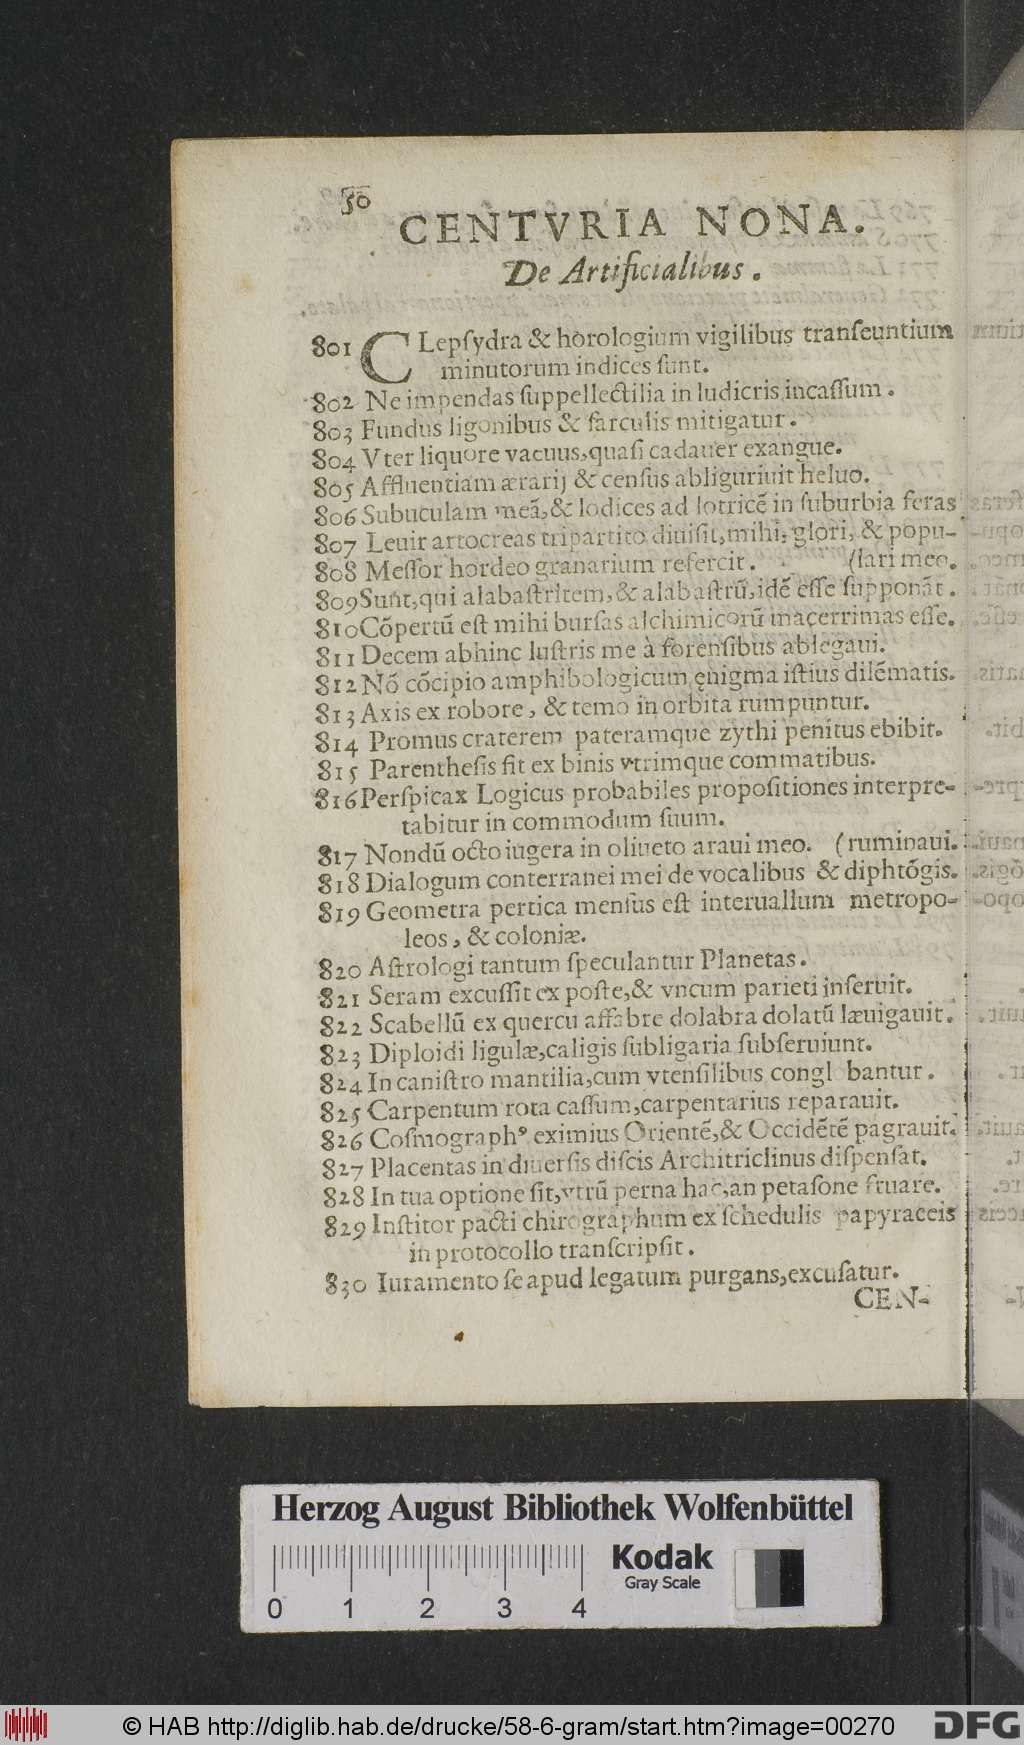 50
CENTVRIA NONA.
De Artificialibus.
801 CLepſydra & horologium vigilibus tranſeuntium
minutorum indices ſunt.
802 Ne impendas ſuppellectilia in ludicris incaſſum.
803 Fundus ligonibus & ſarculis mitigatur.
804 Vter liquore vacuus, quaſi cadauer exangue.
805 Affluentiam ærarij & cenſus abliguriuit heluo.
806 Subuculam meã, & lodices ad lotricẽ in ſuburbia feras
807 Leuir artocreas tripartito diuiſit, mihi, glori, & popu-
808 Meſſor hordeo granarium refercit. (lari meo.
809 Sunt, qui alabaſtritem, & alabaſtrũ, idẽ eſſe ſupponãt.
810 Cõpertũ eſt mihi burſas alchimicorũ macerrimas eſſe.
811 Decem abhinc luſtris me à forenſibus ablegaui.
812 Nõ cõcipio amphibologicum ęnigma iſtius dilẽmatis.
813 Axis ex robore, & temo in orbita rumpuntur.
814 Promus craterem pateramque zythi penitus ebibit.
815 Parentheſis fit ex binis vtrimque commatibus.
816 Perſpicax Logicus probabiles propoſitiones interpre-
tabitur in commodum ſuum.
817 Nondũ octo iugera in oliueto araui meo. (ruminaui.
818 Dialogum conterranei mei de vocalibus & diphtõgis.
819 Geometra pertica menſus eſt interuallum metropo-
leos, & coloniæ.
820 Aſtrologi tantum ſpeculantur Planetas.
821 Seram excuſſit ex poſte, & vncum parieti inſeruit.
822 Scabellũ ex quercu affabre dolabra dolatũ læuigauit.
823 Diploidi ligulæ, caligis ſubligaria ſubſeruiunt.
824 In caniſtro mantilia, cum vtenſilibus congl bantur.
825 Carpentum rota caſſum, carpentarius reparauit.
826 Coſmographꝰ eximius Orientẽ, & Occidẽtẽ pagrauit.
827 Placentas in diuerſis diſcis Architriclinus diſpenſat.
828 In tua optione ſit, vtrũ perna hac, an petaſone fruare.
829 Inſtitor pacti chirographum ex ſchedulis papyraceis
in protocollo tranſcripſit.
830 Iuramento ſe apud legatum purgans, excuſatur.
CEN-
Herzog August Bibliothek Wolfenbüttel
Kodak
Gray Scale
0 1 2 3 4
© HAB http://diglib.hab.de/drucke/58-6-gram/start.htm?image=00270
DFG